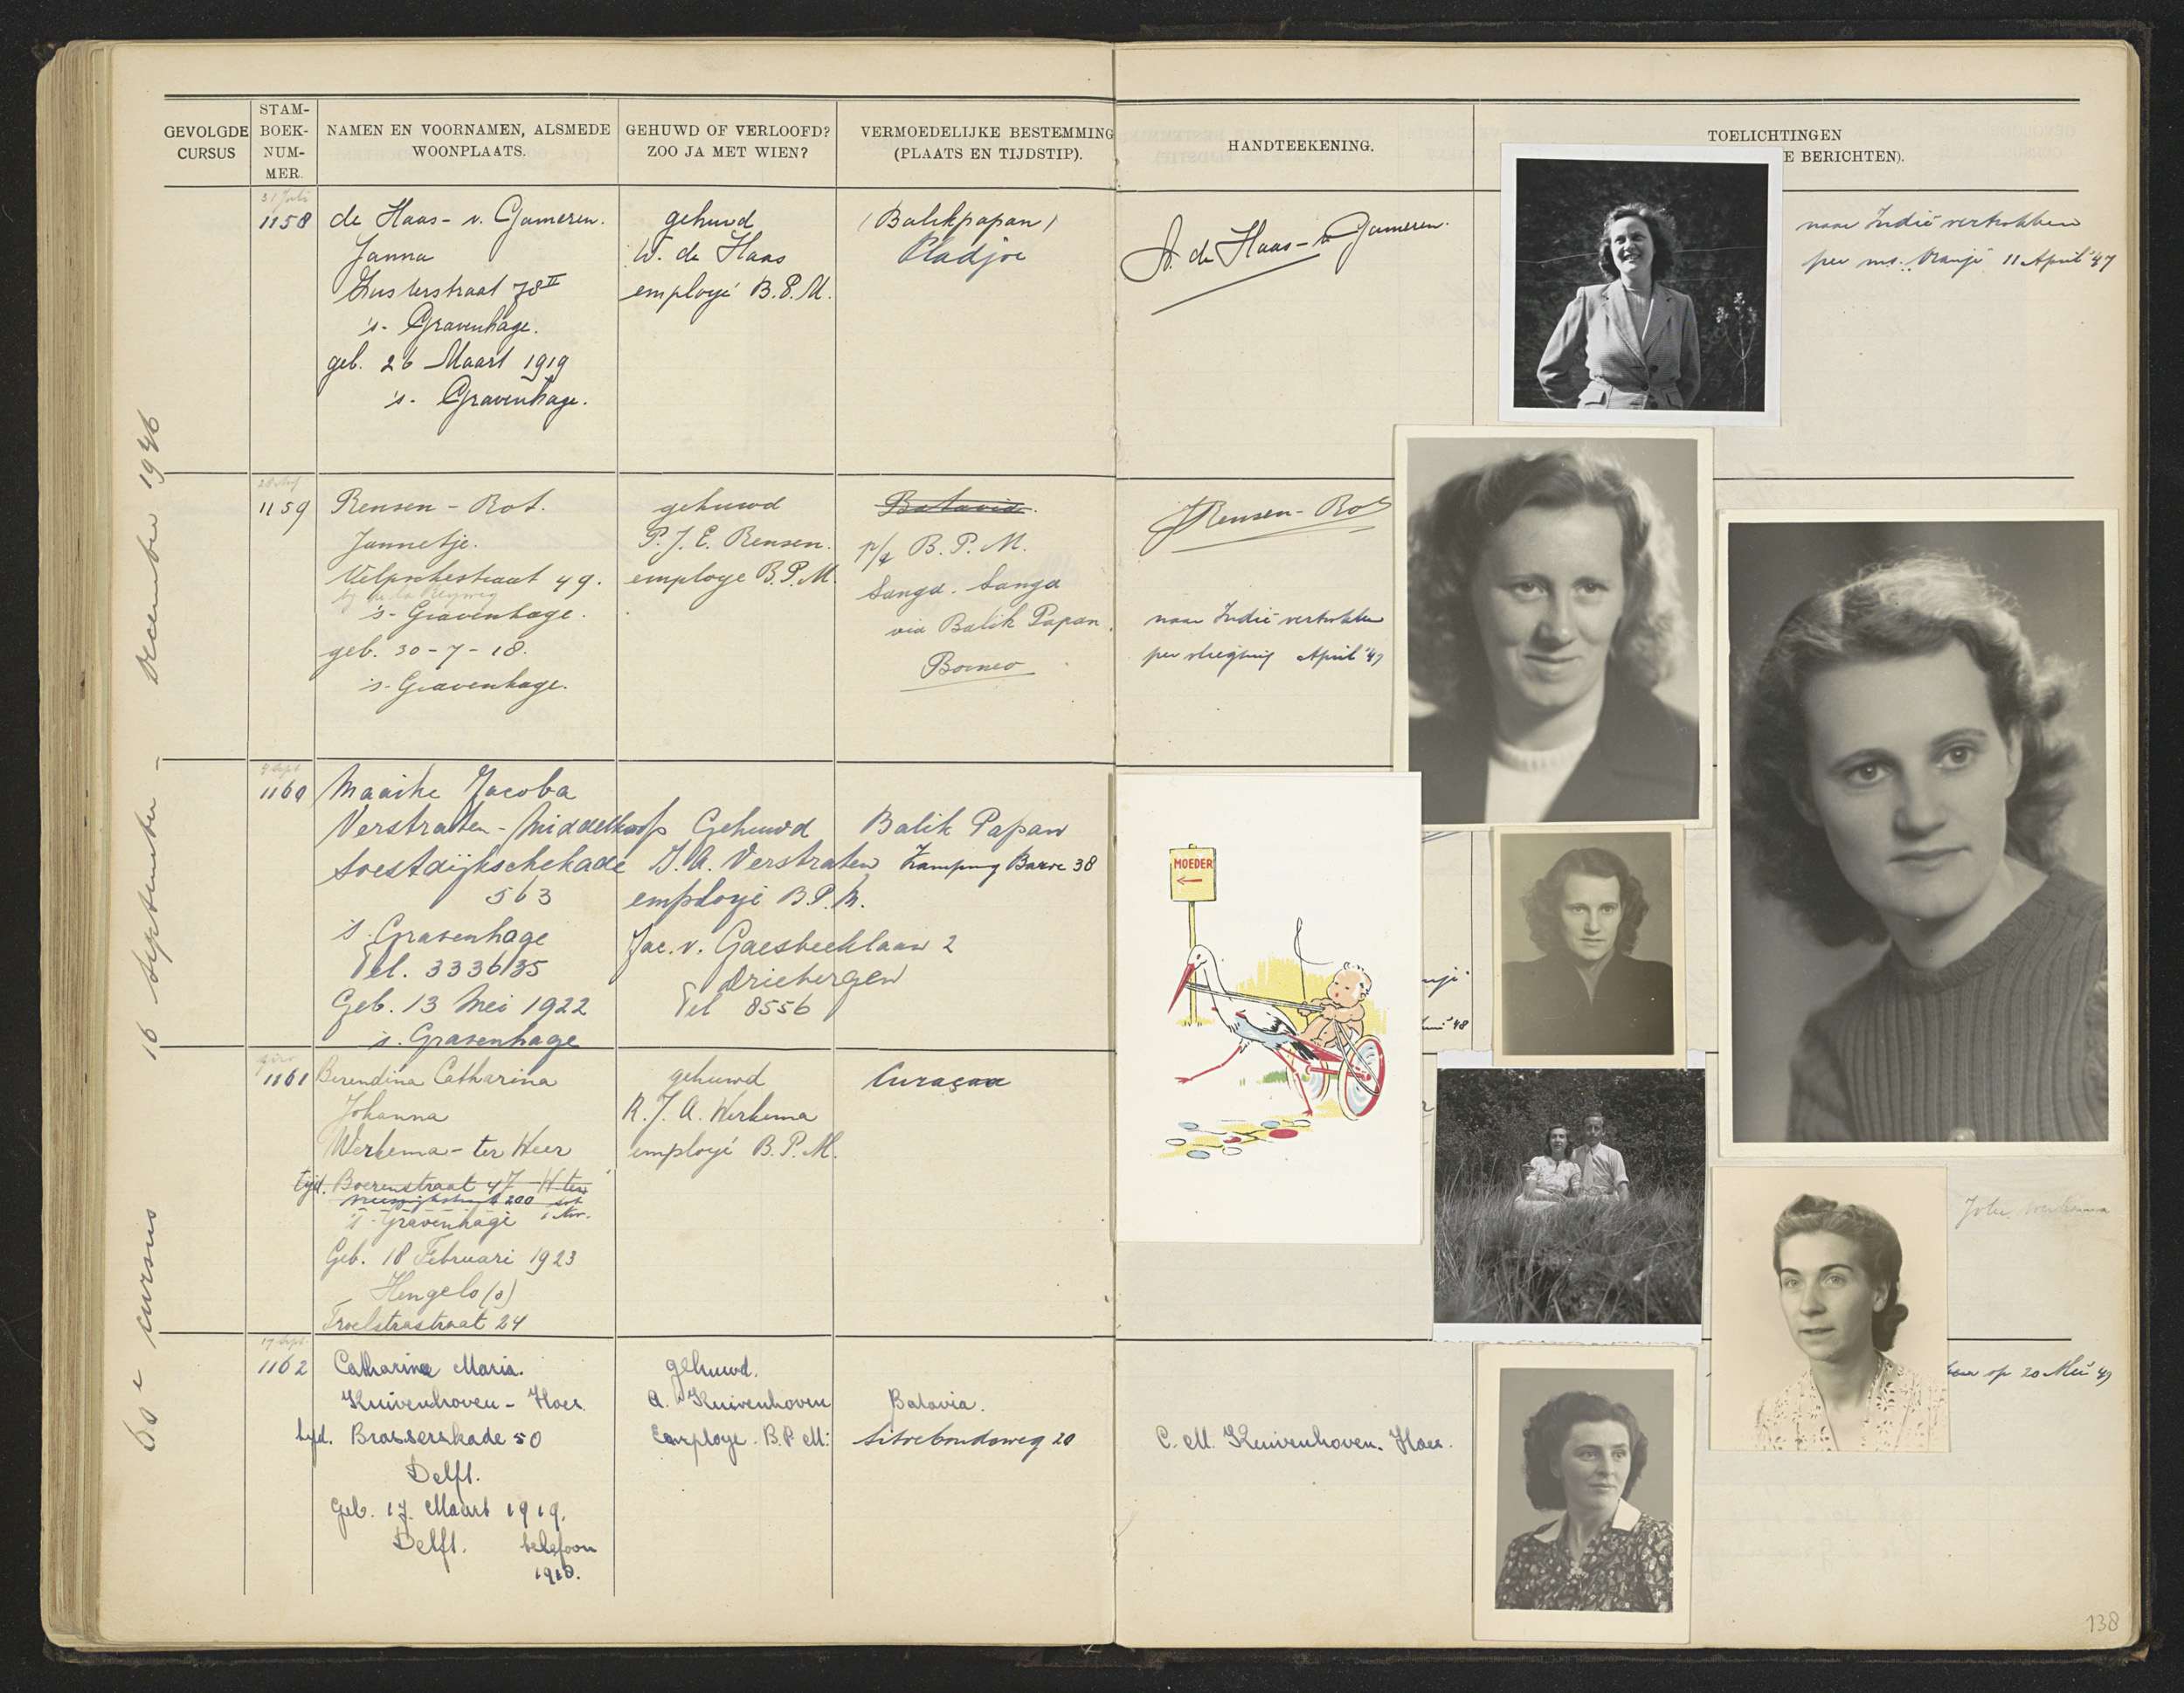 GEVOLGDE CURSUS
STAM-
BOEK-
NUM-
MER.
NAMEN EN VOORNAMEN, ALSMEDE
WOONPLAATS.
GEHUWD OF VERLOOFD?
ZOO JA MET WIEN?
VERMOEDELIJKE BESTEMMING
(PLAATS EN TIJDSTIP).
HANDTEEKENING.
TOELICHTINGEN
E BERICHTEN).
60e cursus 16 September - December 1946
31 Juli
1158
de Haas - v. Gameren.
Janna
78II
's-Gravenhage.
geb. 26 Maart 1919
's-Gravenhage.
gehuwd
W. de Haas
employé B.P.M.
(Balikpapan)
Pladjoe
de Haas - v Gameren.
naar Indië vertrokken
per ms. "Oranje" 11 April '47
1159
Rensen - Rot.
Jannetje.
49.
's-Gravenhage.
geb. 30-7-18.
's-Gravenhage.
gehuwd
P.J.E. Rensen.
employe B.P.M.
Batavia.
p/a B.P.M.
Sanga. Sanga
via Balik Papan.
Borneo
JRensen-Rot
naar Indië vertrokken
per vliegtuig April '47
9 Sept
1160
Maaike Jacoba
Verstraten - Middelkoop
Soestdijkschekade
563
's Gravenhage
Tel. 333635
Geb. 13 Mei 1922
's. Gravenhage
Gehuwd
J.A. Verstraten
employé B.P.M.
Jac. v. Gaesbeeklaan 2
Driebergen
Tel 8556
Balik Papan
Kampong Baroe 38
MOEDER
'48
1161
Berendina Catharina
Johanna
Werkema - ter Weer
tijd. Boerenstraat 47
200
's-Gravenhage
Geb. 18 Februari 1923
Hengelo (o)
Troelstrastraat 24
gehuwd
R.J.A. Werkema
employé B.P.M.
Curaçao
op 20 Mei '47
17 Sept.
1162
Catharina Maria.
Kuivenhoven - Hoes
tijd. Brasserskade 50
Delft.
Geb. 17 Maart 1919.
Delft. telefoon
1918.
gehuwd.
A. Kuivenhoven
Employe. B.P.M.
Batavia.
Sitoebondoweg 20
C. M. Kuivenhoven. Hoes.
138